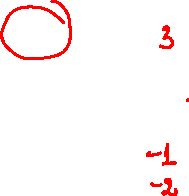 3
-1
-2